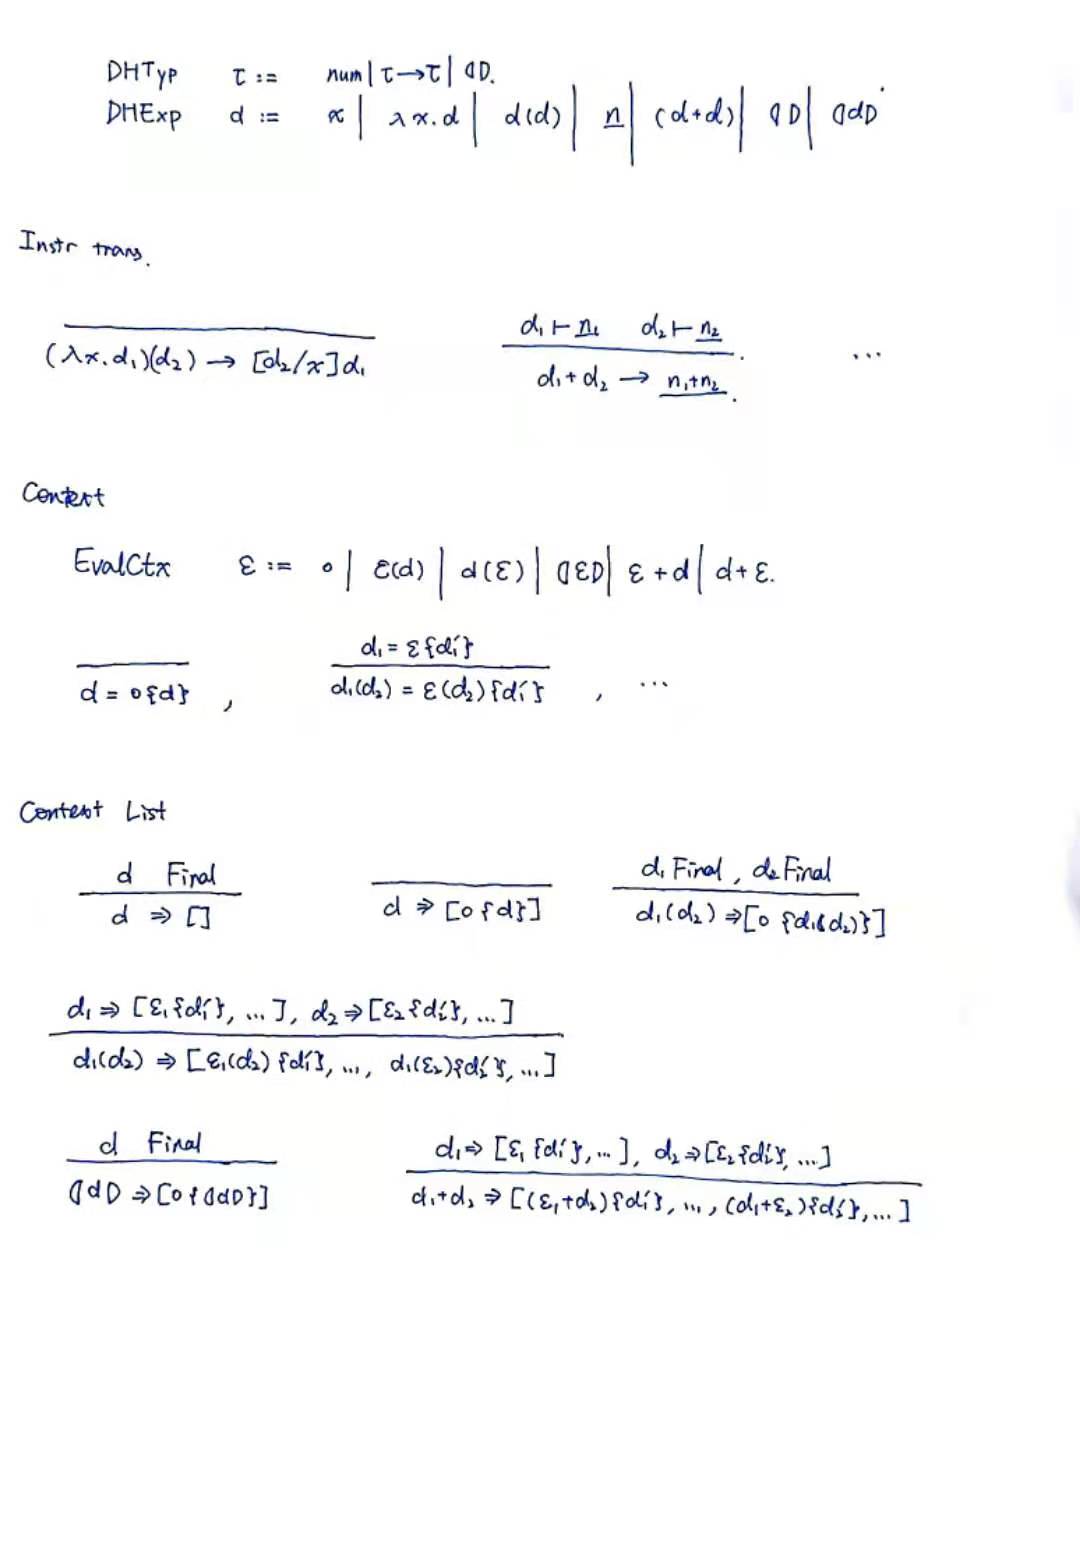 DHTyp τ := num | τ→τ | ⦇⦈.
DHExp d := x | λx.d | d(d) | n | (d+d) | ⦇⦈ | ⦇d⦈
Instr trans.
(λx.d₁)(d₂) → [d₂/x]d₁
d₁ ⊢ n₁ d₂ ⊢ n₂
d₁+d₂ → n₁+n₂. ...
Context
EvalCtx ε := ∘ | ε(d) | d(ε) | ⦇ε⦈ | ε+d | d+ε.
d = ∘{d} ,
d₁ = ε{d₁'}
d₁(d₂) = ε(d₂){d₁'} , ...
Context List
d Final
d ⇒ []
d ⇒ [∘{d}]
d₁ Final, d₂ Final
d₁(d₂) ⇒ [∘{d₁(d₂)}]
d₁ ⇒ [ε₁{d₁'}, ...], d₂ ⇒ [ε₂{d₂'}, ...]
d₁(d₂) ⇒ [ε₁(d₂){d₁'}, ..., d₁(ε₂){d₂'}, ...]
d Final
⦇d⦈ ⇒ [∘{⦇d⦈}]
d₁ ⇒ [ε₁{d₁'}, ...], d₂ ⇒ [ε₂{d₂'}, ...]
d₁+d₂ ⇒ [(ε₁+d₂){d₁'}, ..., (d₁+ε₂){d₂'}, ...]